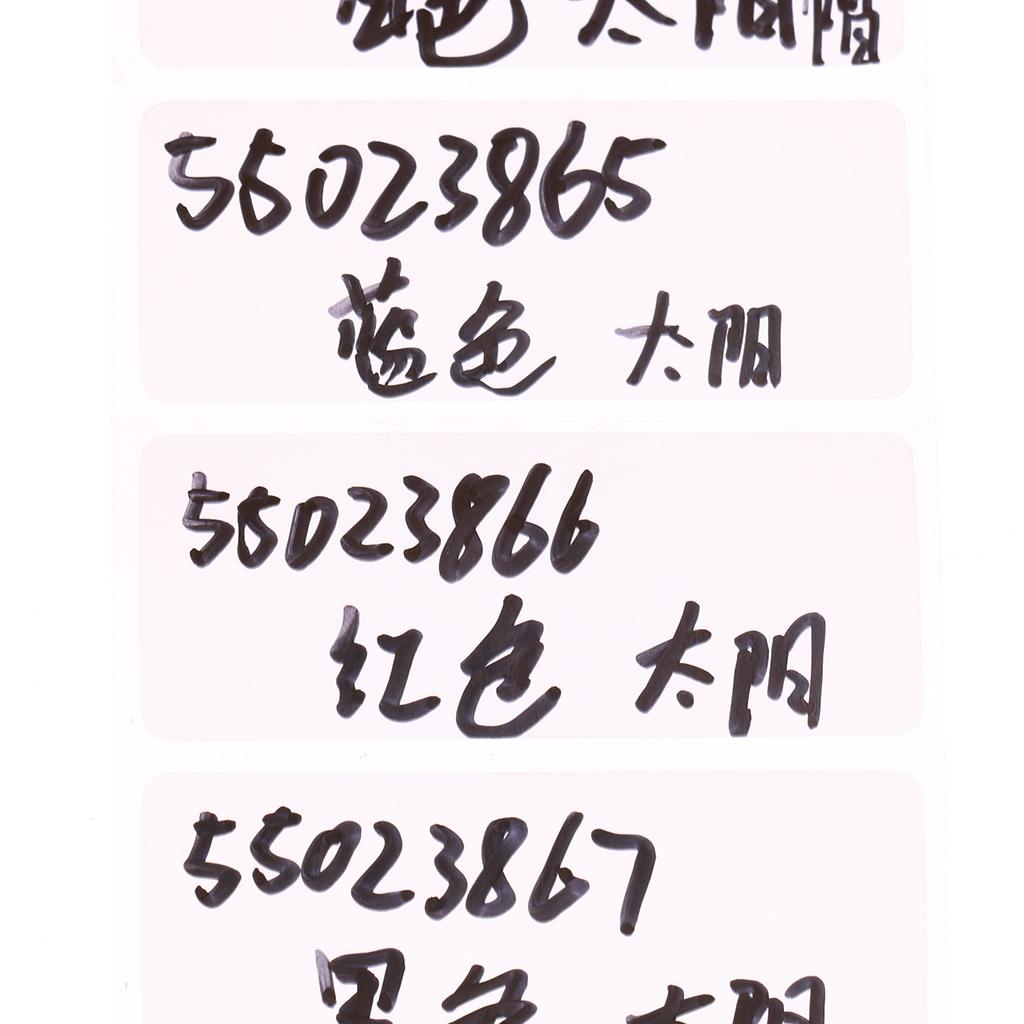 色 太阳
55023865
蓝色 太阳
55023866
红色 太阳
55023867
黑色 太阳